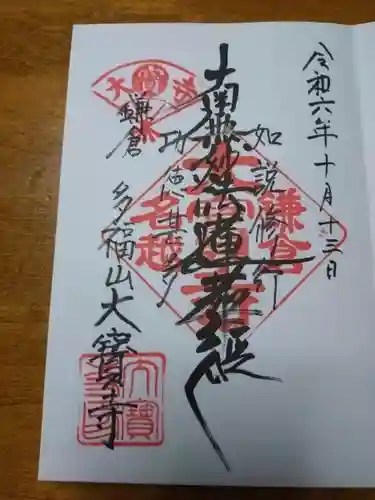 令和六年十月十三日
如説修行
南無妙法蓮華経
功徳甚多
鎌倉
多福山大寶寺
鎌倉
名越